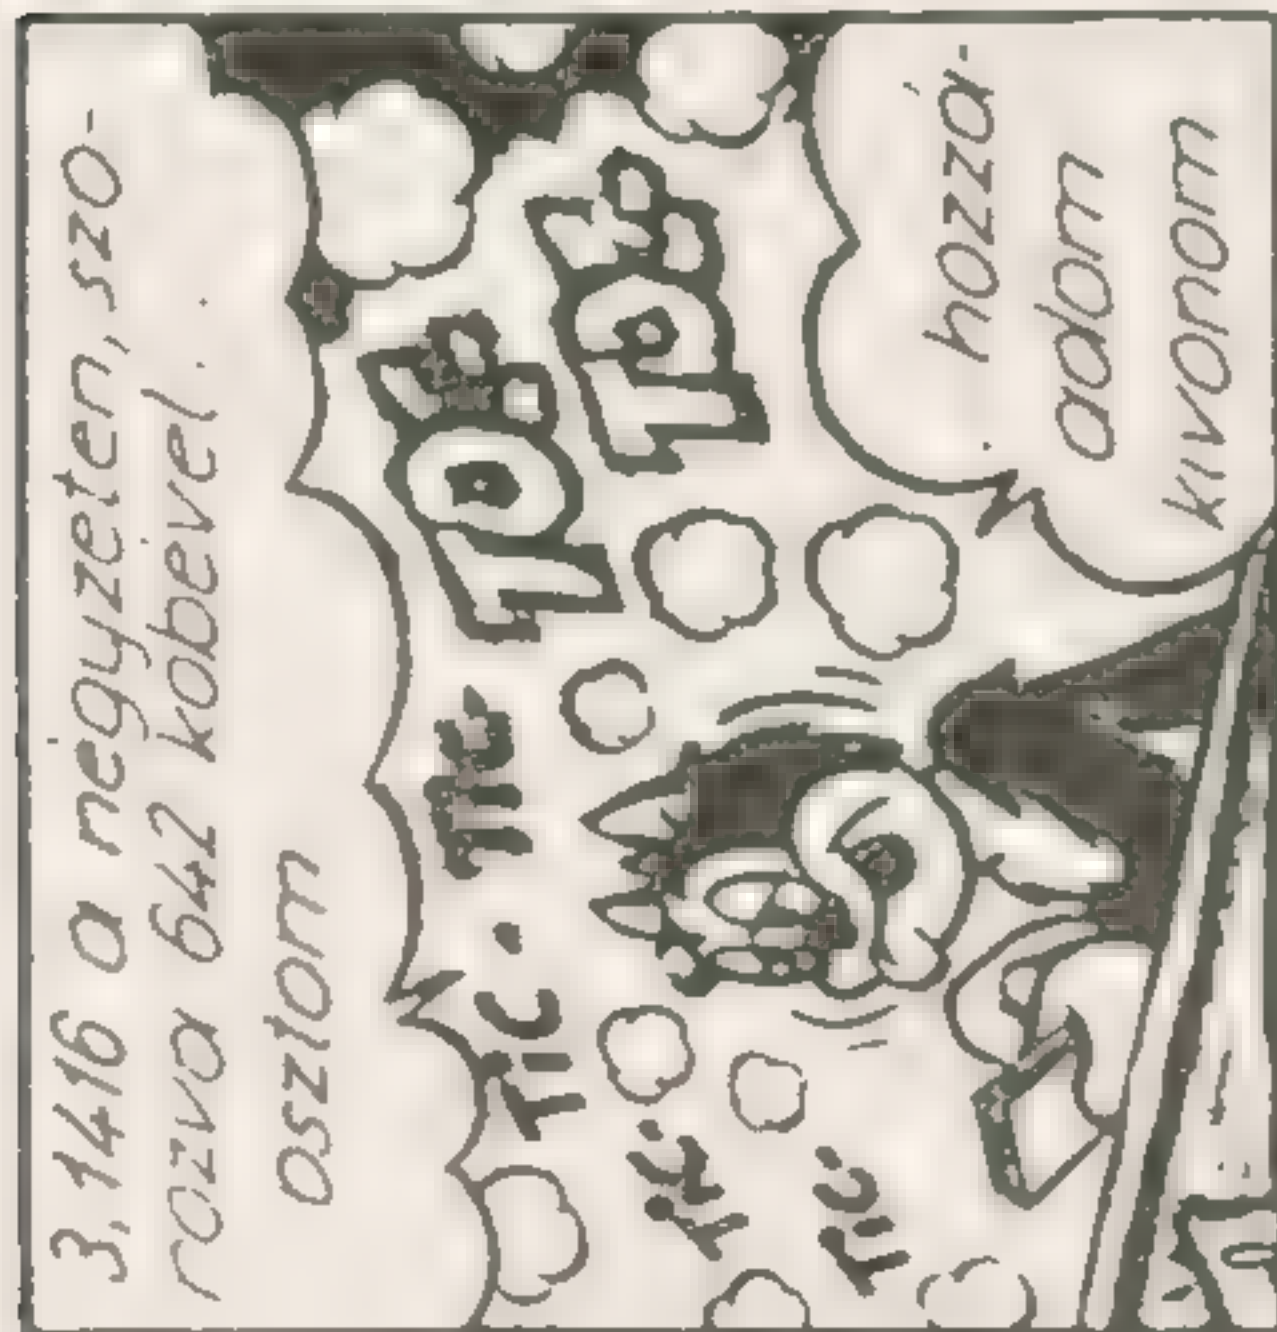 3,1416 a negyzeten, szo-
rozva 642 kobevel...
osztom
TIC
TIC
TIC
TIC
hozzá-
adom
kivonom